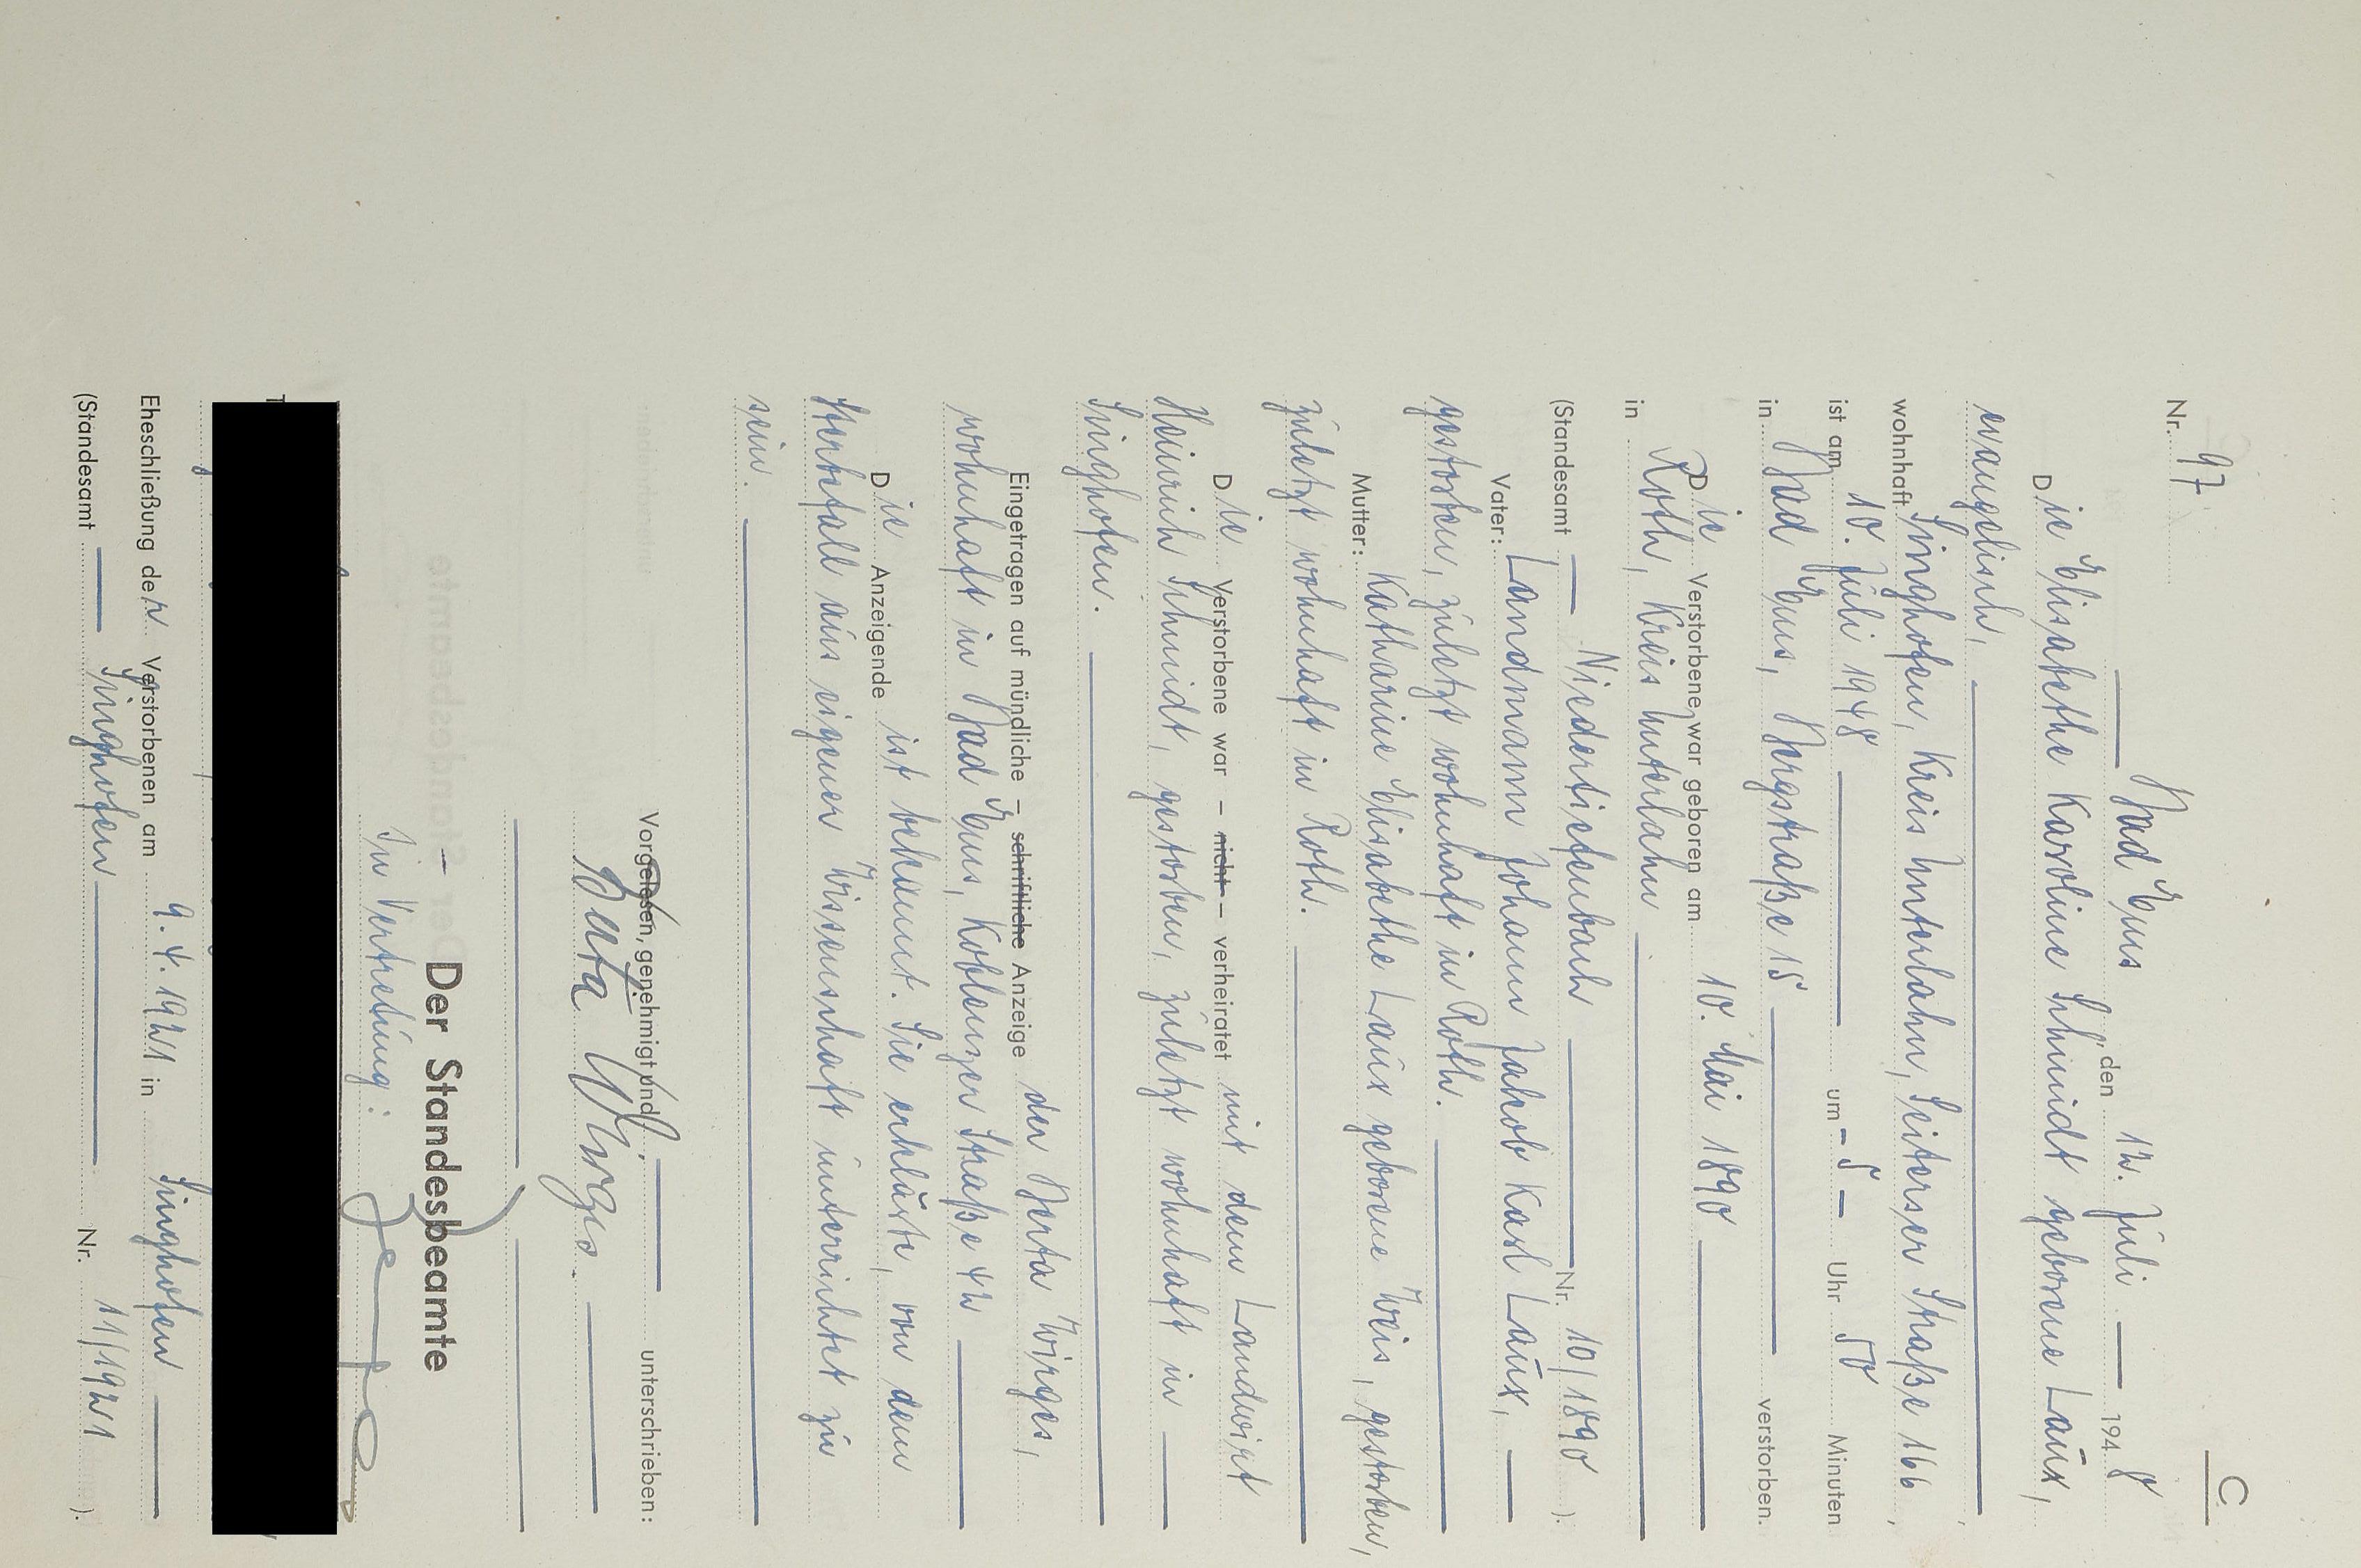 C.
Nr. 97
Bad Ems, den 12. Juli 1948
Die Elisabethe Karoline Schmidt geborene Laux,
evangelisch,
wohnhaft Singhofen, Kreis Unterlahn, Seiterser Straße 166,
ist am 10. Juli 1948 um - 5 - Uhr 50 Minuten
in Bad Ems, Bergstraße 15 verstorben.
Die Verstorbene war geboren am 10. Mai 1890
in Roth, Kreis Unterlahn
(Standesamt — Niedertiefenbach Nr. 10/1890 ).
Vater: Landmann Johann Jakob Karl Laux,
gestorben, zuletzt wohnhaft in Roth.
Mutter: Katharine Elisabethe Laux geborene Weis, gestorben,
zuletzt wohnhaft in Roth.
Die Verstorbene war – nicht – verheiratet mit dem Landwirt
Heinrich Schmidt, gestorben, zuletzt wohnhaft in
Singhofen.
Eingetragen auf mündliche – schriftliche Anzeige der Berta Wirges,
wohnhaft in Bad Ems, Koblenzer Straße 42
Die Anzeigende ist bekannt. Sie erklärte, von dem
Sterbefall aus eigener Wissenschaft unterrichtet zu
sein.
Vorgelesen, genehmigt und unterschrieben:
Berta Wirges.
Der Standesbeamte
In Vertretung:
Eheschließung der Verstorbenen am 9.4.1921 in Singhofen
(Standesamt — Singhofen Nr. 11/1921 ).